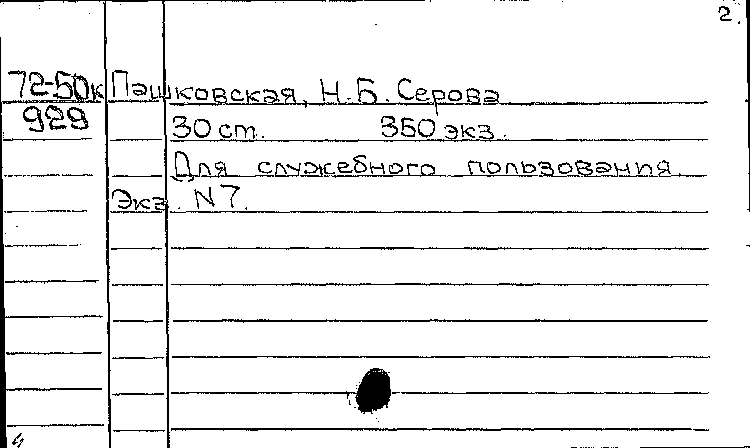 2.
72-50к Пашковская, Н.Б. Серова
929 30 ст. 350 экз.
Для служебного пользования.
Экз. N7.